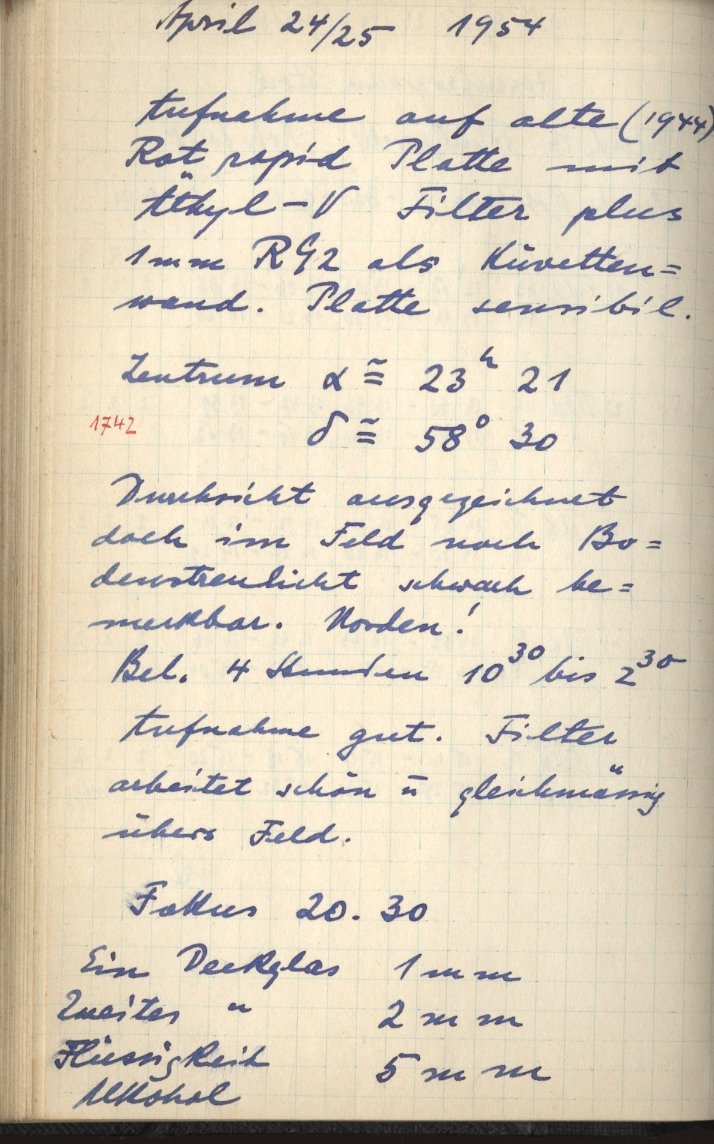 April 24/25 1954
Aufnahme auf alte (1944)
Rot rapid Platte mit
Äthyl-V Filter plus
1mm RG2 als Küvetten=
wand. Platte sensibil.
Zentrum α ≅ 23h 21
1742 δ ≅ 58° 30
Durchsicht ausgezeichnet
doch im Feld noch Bo=
denstreulicht schwach be=
merkbar. Norden!
Bel. 4 Stunden 10³⁰ bis 2³⁰
Aufnahme gut. Filter
arbeitet schön ū gleichmässig
übers Feld.
Fokus 20.30
Ein Deckglas 1mm
Zweites " 2mm
Flüssigkeit 5mm
Alkohol